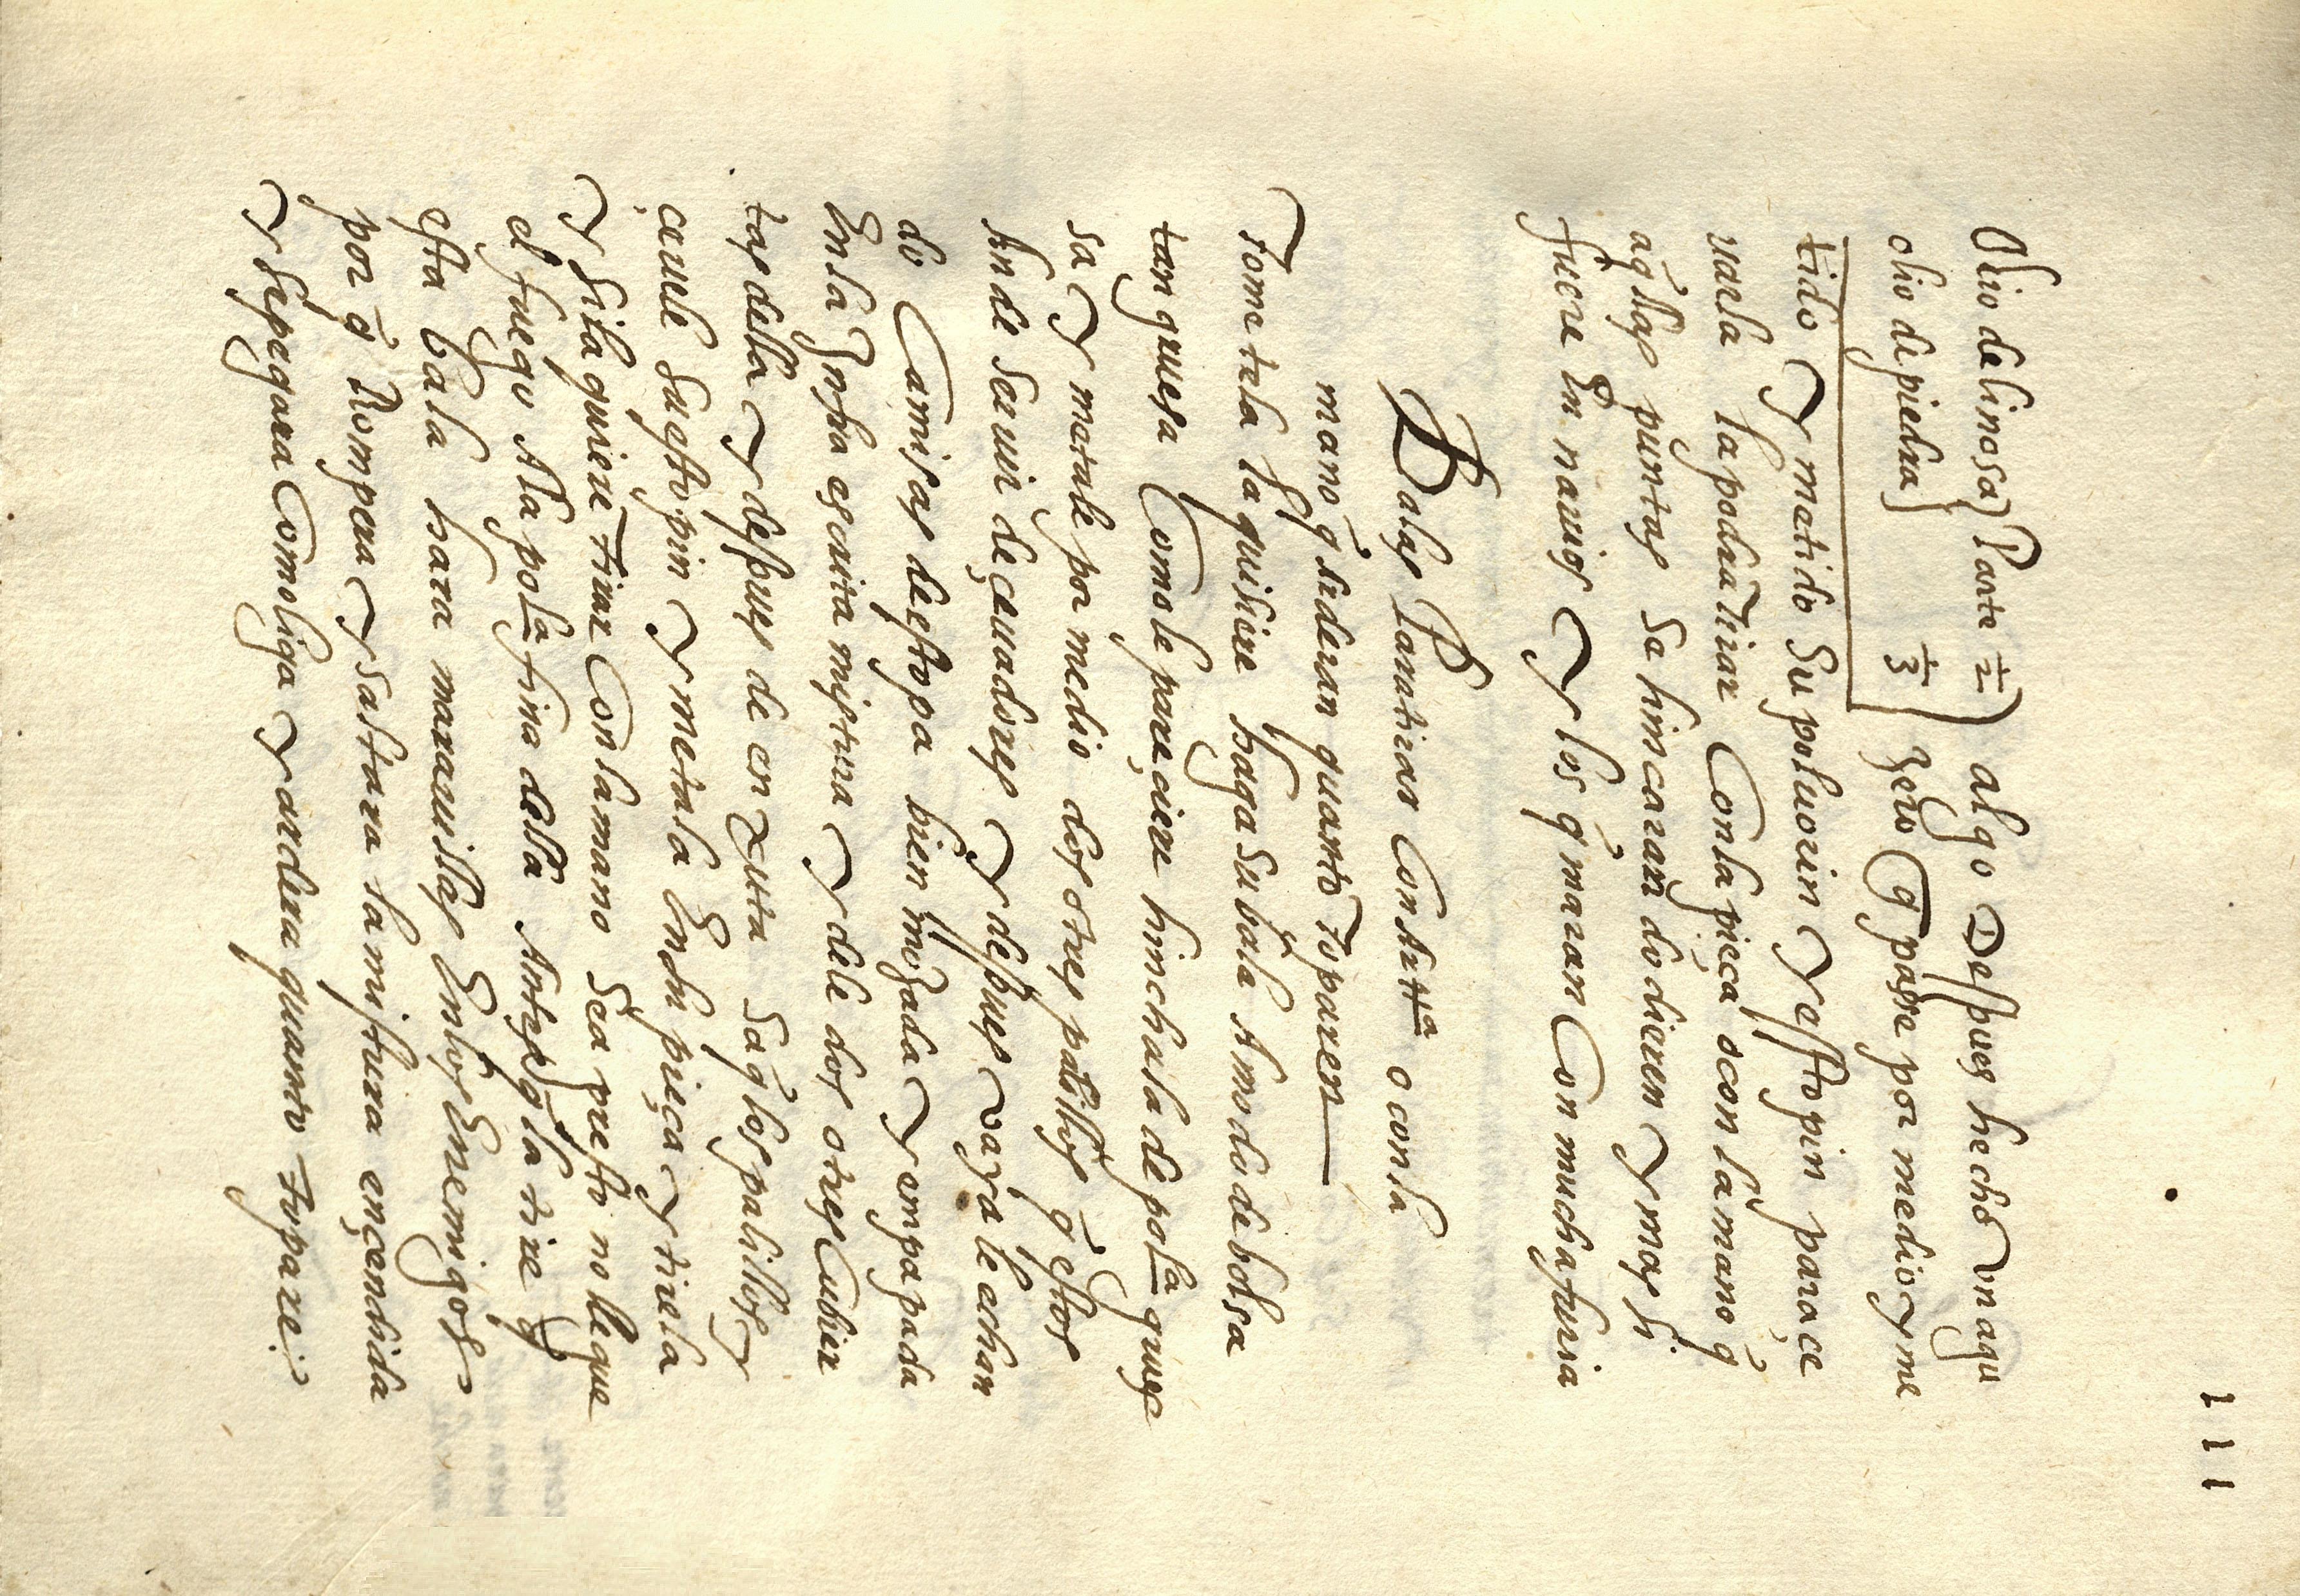 111
Olio de linosa} Parte ½} algo Despues hecho vn agu
olio de piedra} ⅓} gero q̃ pase por medio y me
tido y matido su poluorin y estopin para çe
uarla la podra tirar Con la pieça o con la mano q̃
aq̃llas puntas se hincaran do dieren y mas si
fuere En nauios y los q̃maran Con mucha furia
Balas Para tirar Con Artᵃ o con la
mano q̃ arderan quanto Toparen
Tome tela la que quisiere haga su bala A modo de bolsa
tan gruesa Como le pareçiere hinchala de polᵃ grues
sa y metale por medio dos o tres palillos q̃ estos
An de seruir de çeuadores y despues vayale echan
do Camisas de estopa bien mojada y empapada
En la Infra escrita mistura y dele dos o tres Cubier
tas della y despues de enxuta saq̃ los palillos y
çeuele su estopin y metala En la pieça y tirela
y si la quiere tirar Con la mano sea presto no llegue
el fuego Ala polᵃ fina della Antes q̃ la tire q̃
esta bala hara marauillas En los Enemigos
por q̃ Rompera y saltara la mistura ençendida
y se pegara Como liga y ardera quanto topare